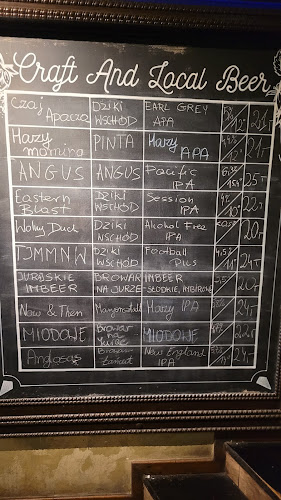 Craft And Local Beer
Czaj Apaczo DZIKI WSCHÓD EARL GREY APA 12° 21zł
Hazy morning PINTA Hazy APA 12° 21zł
ANGUS ANGUS Pacific IPA 15° 25zł
Eastern Blast DZIKI WSCHÓD Session IPA 4% 10° 22zł
Wolny Duck DZIKI WSCHÓD Alkohol Free IPA 20zł
TJMMNW DZIKI WSCHÓD Football Pils 4,5% 11° 24zł
JURAJSKIE IMBEER BROWAR NA JURZE IMBEER SŁODKIE, IMBIROWE 20zł
Now & Then Hazy IPA 24zł
MIODOWE Browar na Jurze MIODOWE 22zł
Anglosas Browar Zamkat New England IPA 24zł